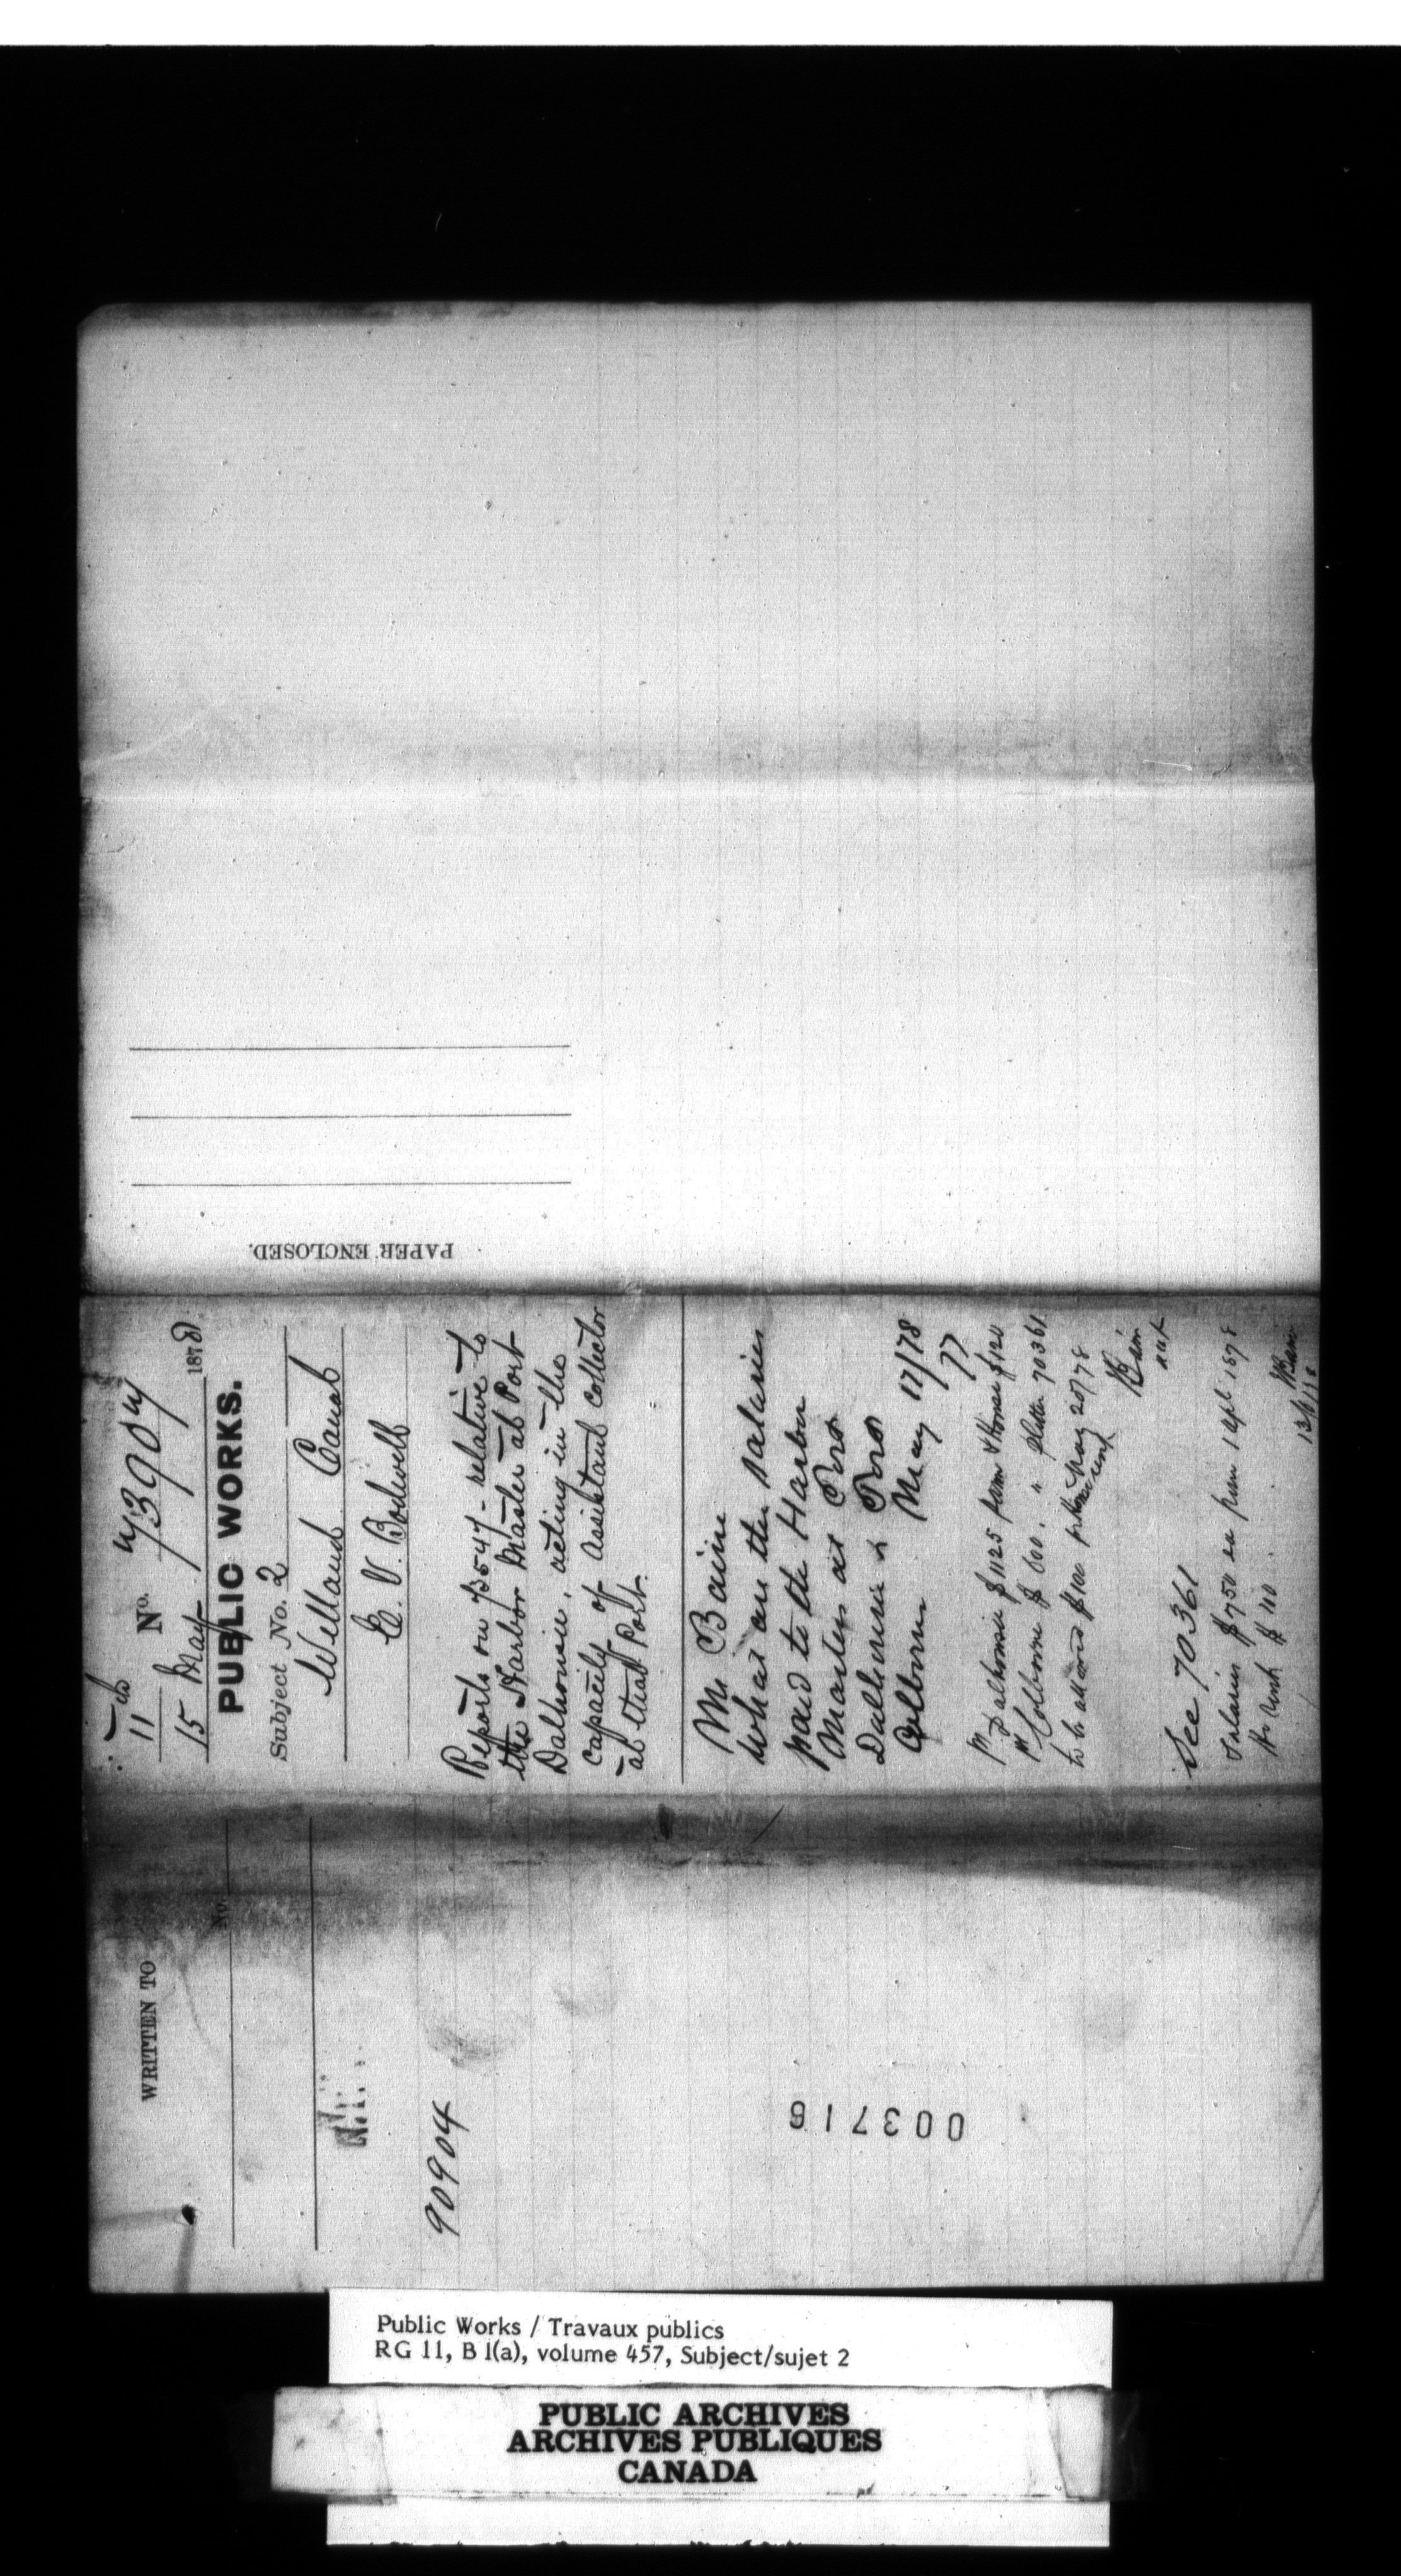 PAPER ENCLOSED.
11 No. 73904
15 May 1878
PUBLIC WORKS.
Subject No. 2
Welland Canal
E. V. Bodwell
Reports on 73547 - relative to
the Harbor Master at Port
Dalhousie, acting in the
capacity of assistant collector
at that Port.
Mr Baine
what are the salaries
paid to the Harbor
Masters at Port
Dalhousie & Port
Colborne May 17/78
Pt Dalhousie $1125 & House $120
Pt Colborne $600
to be allowed $100 May 20/78
Baine
See 70361
Salaries $750 1 Apl 1878
Ho rent $110
Baine
WRITTEN TO
No.
90904
003716
Public Works / Travaux publics
RG 11, B 1(a), volume 457, Subject/sujet 2
PUBLIC ARCHIVES
ARCHIVES PUBLIQUES
CANADA